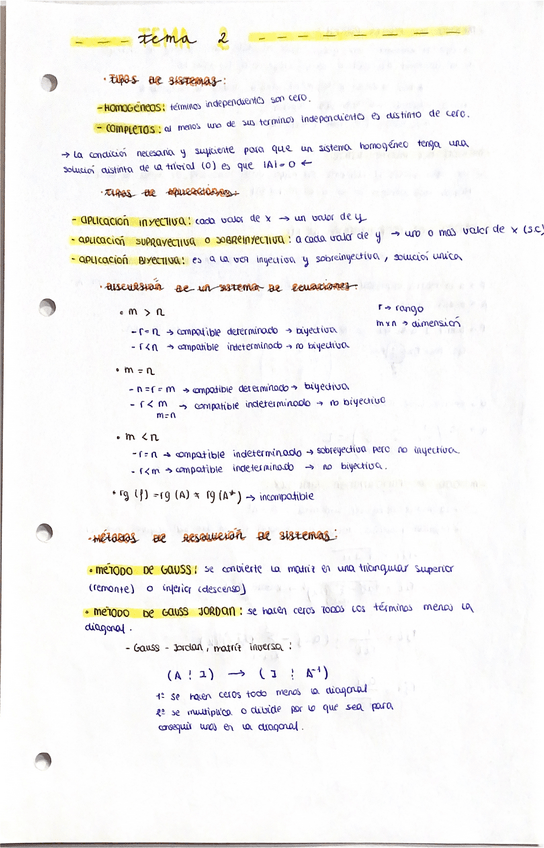 tema 2
· Tipos de sistemas:
- HOMOGÉNEOS: términos independientes son cero.
- COMPLETOS: al menos uno de sus terminos independientes es distinto de cero.
→ La condición necesaria y suficiente para que un sistema homogéneo tenga una
solución distinta de la trivial (0) es que |A| = 0 ←
· Tipos de aplicaciones:
- APLICACIÓN INYECTIVA: cada valor de x → un valor de y
- APLICACIÓN SUPRAYECTIVA O SOBREINYECTIVA: a cada valor de y → uno o más valor de x (s.c)
- APLICACIÓN BIYECTIVA: es a la vez inyectiva y sobreinyectiva, solución única
· Discusión de un sistema de ecuaciones:
• m > n
r → rango
m x n → dimensión
- r = n → compatible determinado → biyectiva
- r < n → compatible indeterminado → no biyectiva
• m = n
- n = r = m → compatible determinado → biyectiva
- r < m → compatible indeterminado → no biyectivo
m = n
• m < n
- r = n → compatible indeterminado → sobreyectiva pero no inyectiva
- r < m → compatible indeterminado → no biyectiva.
• rg (f) = rg (A) ≠ rg (A*) → incompatible
· Métodos de resolución de sistemas:
• MÉTODO DE GAUSS: se convierte la matriz en una triangular superior
(remonte) o inferior (descenso)
• MÉTODO DE GAUSS JORDAN: se hacen ceros todos los términos menos la
diagonal.
- Gauss - Jordan, matriz inversa:
(A ¦ I) → (I ¦ A⁻¹)
1º se hacen ceros todo menos la diagonal
2º se multiplica o divide por lo que sea para
conseguir unos en la diagonal.